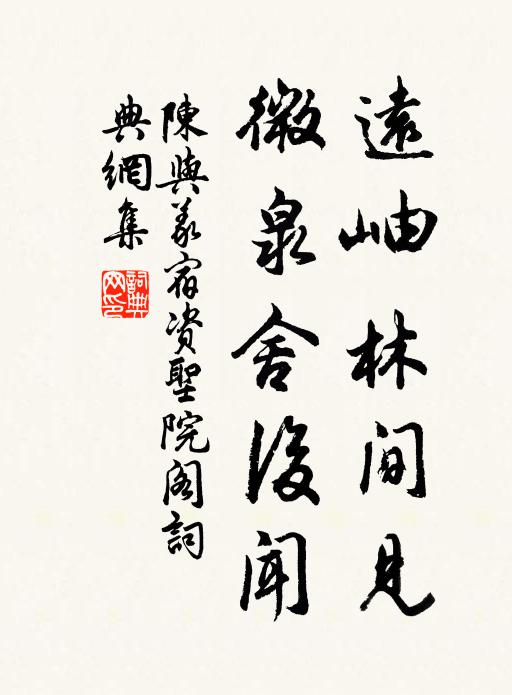 遠岫林間見
微泉舍後聞
陳與義宿資聖院閣詞
典網集
詞典網印